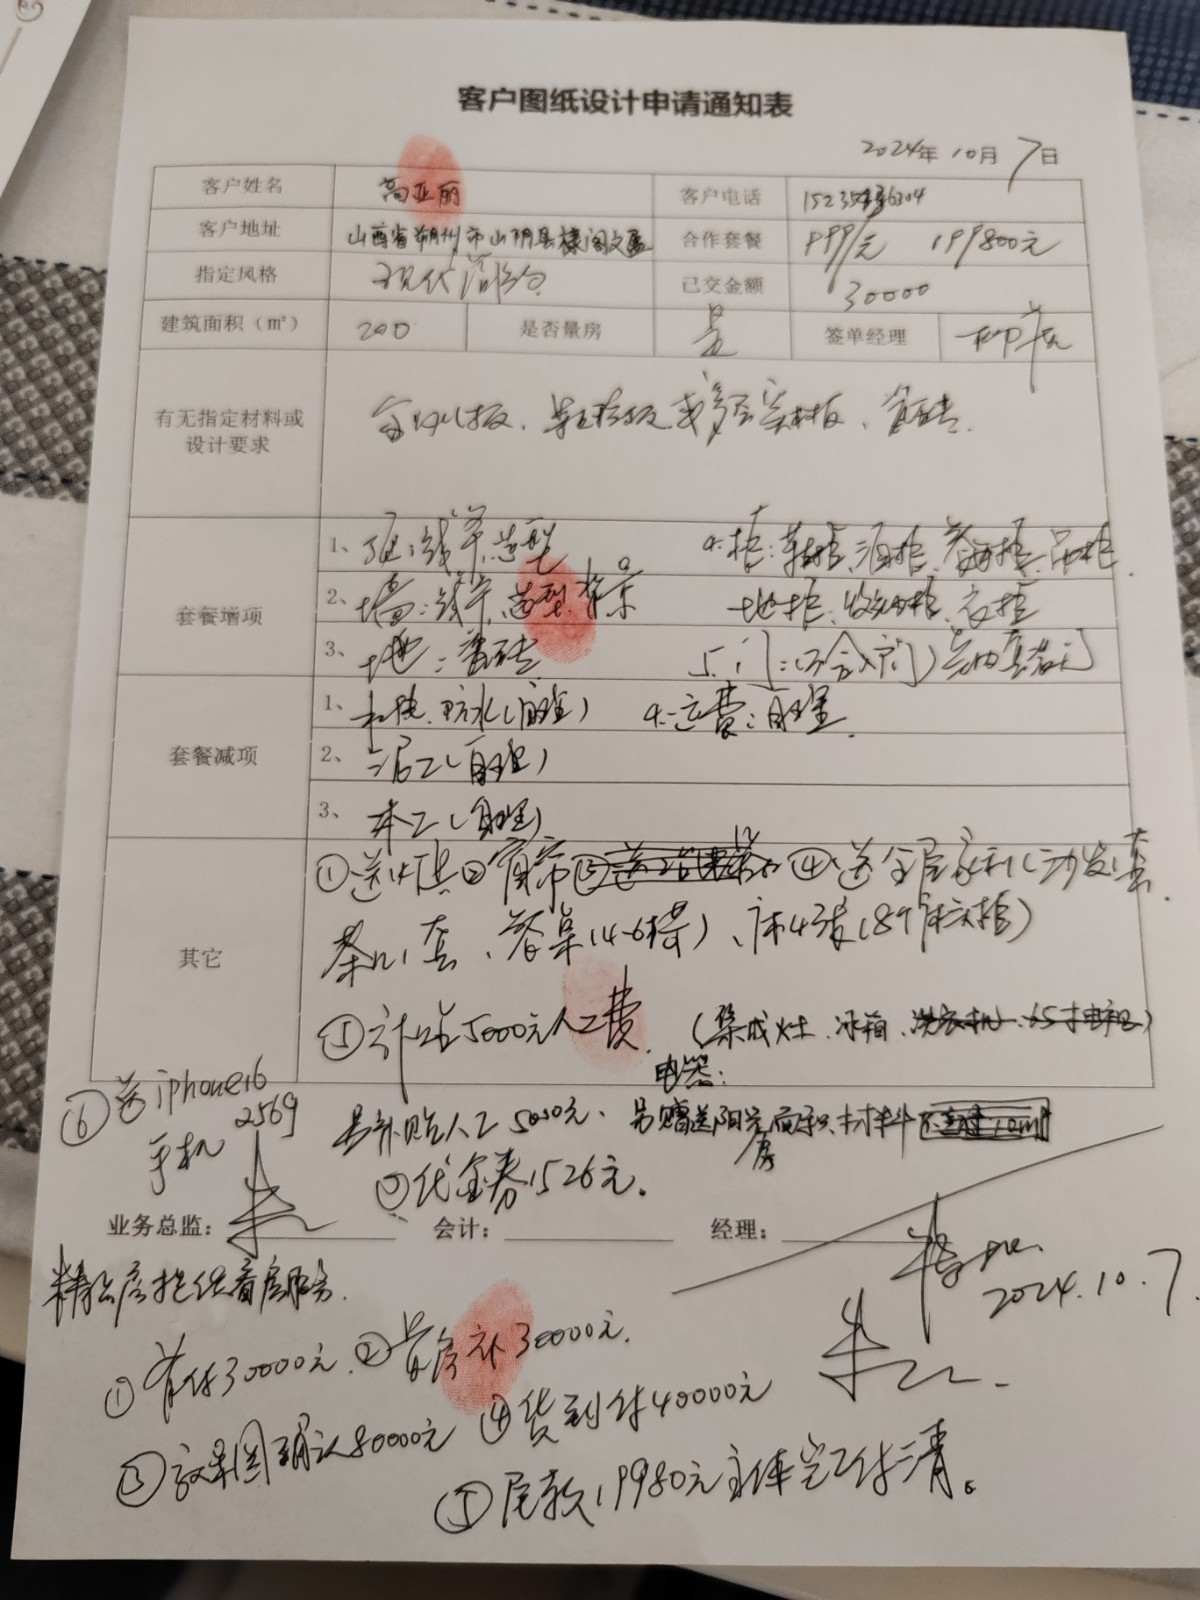 客户图纸设计申请通知表
2024年10月7日
客户姓名 高亚丽 客户电话
客户地址 山西省朔州市山阴县 合作套餐 999/元 199800元
指定风格 现代 已交金额 30000
建筑面积（㎡） 200 是否量房 是 签单经理
有无指定材料或
设计要求
板、颗粒板或多层实木板、瓷砖.
套餐增项
1、顶:线条.造型 4.柜:鞋柜.酒柜. 吊柜.
2、墙:线条.造型.背景 地柜. 衣柜
3、地:瓷砖 5.门:(不含入户门)
套餐减项
1、水电.防水(自理) 4.运费:自理.
2、泥工(自理)
3、木工(自理)
其它
①送灯具②窗帘③ ④送全屋家私(沙发1套.
茶几1套、餐桌(4-6椅)、床4张
⑤补贴5000元人工费. (集成灶.冰箱.洗衣机.
电器:
⑥送iphone16 手机 2569
另补贴人工5000元、另赠送阳光房 材料
⑦代金券1526元.
业务总监: 会计: 经理:
2024.10.7
提供看房服务.
①首付30000元.②看房补30000元.
③效果图确认80000元 ④货到付40000元
⑤尾款19980元主体完工付清。